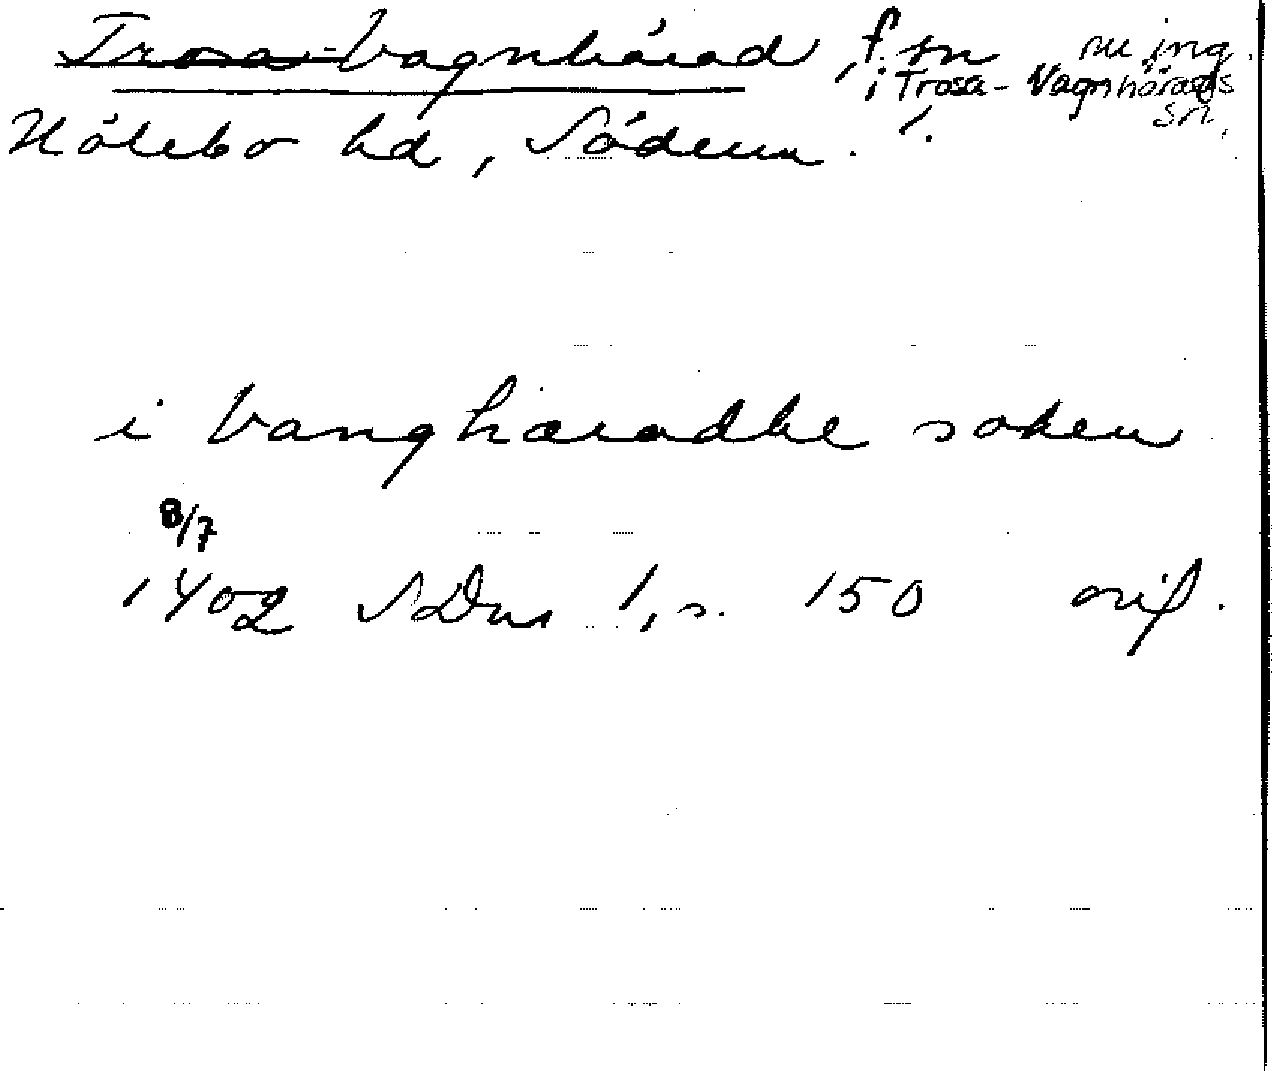 Trosa-Vagnhärad, f. sn nu ing.
i Trosa-Vagnhärads
sn.
Hölebo hd, Söderm. 1.
i Vanghæradhe soken
8/7
1402 SDns 1, s. 150 orig.